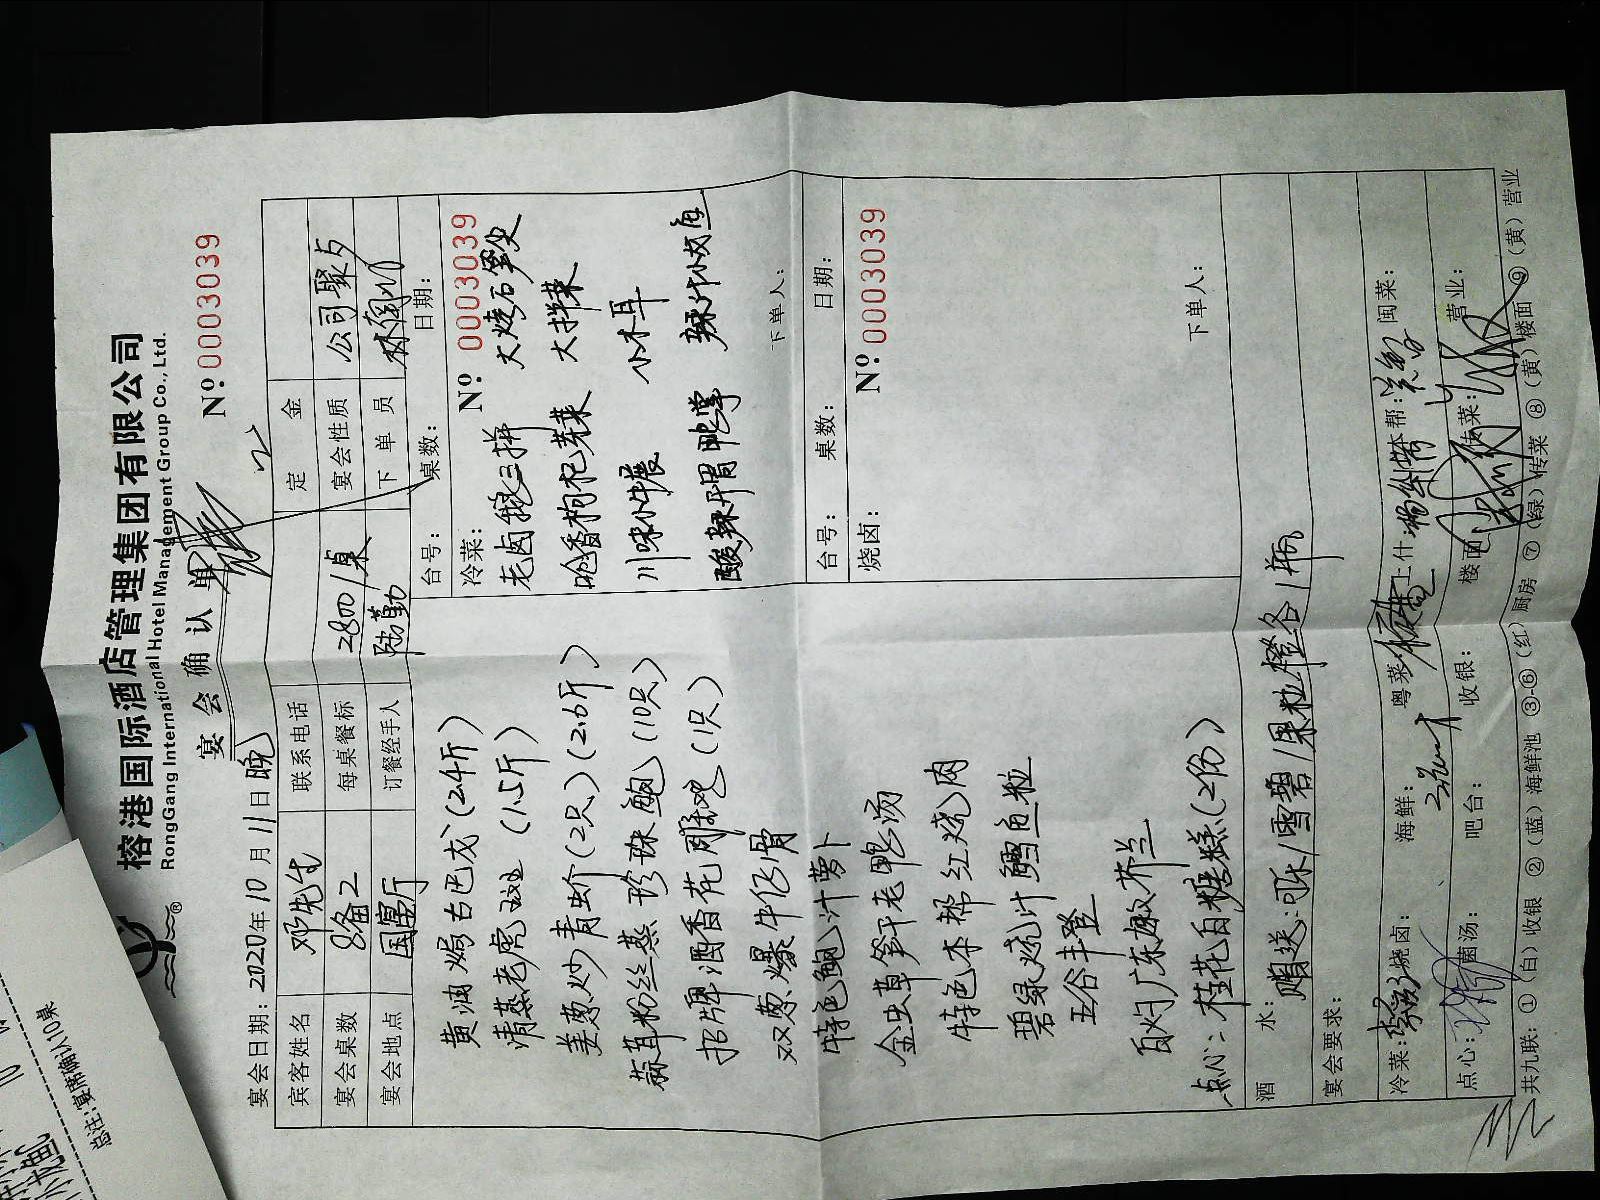 榕港国际酒店管理集团有限公司
RongGang International Hotel Management Group Co., Ltd.
®
宴会确认单
Nº:0003039
宴会日期:2020年10月11日晚
宾客姓名 邓先生 联系电话 定金
宴会桌数 8备2 每桌餐标 2800/桌 宴会性质 公司聚
宴会地点 国宴厅 订餐经手人 陆勤 下单员
黄油焗古巴龙(2.4斤)
清蒸老虎斑 (1.5斤)
姜葱炒青蚧(2只)(2.6斤)
蒜茸粉丝蒸珍珠鲍(10只)
招牌酒香花雕鸡(1只)
双葱爆牛仔骨
特色鲍汁萝卜
金虫草笋干老鸭汤
特色本帮红烧肉
碧绿烧汁鳕鱼粒
五谷丰登
白灼广东嫩芥兰
点心:桂花白糖糕(2份)
台号: 桌数: 日期:
冷菜: Nº 0003039
老卤鹅三拼 大烧石笋尖
呛香枸杞芽菜 大拌菜
川味小牛展 小木耳
酸辣开胃鸭掌 辣汁小波鱼
下单人:
台号: 桌数: 日期:
烧卤: Nº:0003039
下单人:
酒水: 赠送:可乐/雪碧/果粒橙各1瓶
宴会要求:
冷菜: 烧卤: 海鲜: 粤菜: 上什: 本帮: 闽菜:
点心: 菌汤: 吧台: 收银: 楼面: 传菜: 营业:
共九联:①(白)收银 ②(蓝)海鲜池 ③-⑥(红)厨房 ⑦(绿)传菜 ⑧(黄)楼面 ⑨(黄)营业
总注:宴席确认10桌